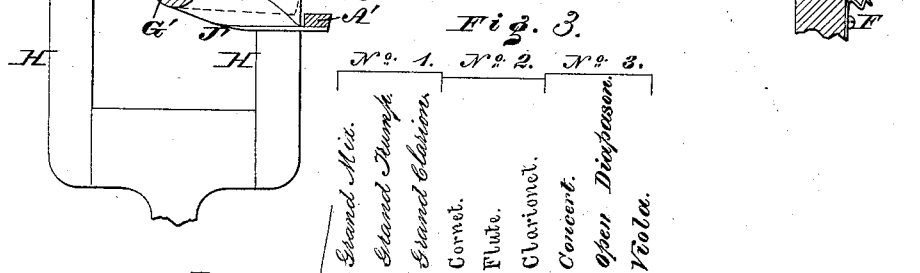 G' J A' F
Fig. 3.
H H
No. 1. No. 2. No. 3.
Grand Mix.
Grand Trump.
Grand Clarion.
Cornet.
Flute.
Clarionet.
Concert.
Open Diapason.
Viola.